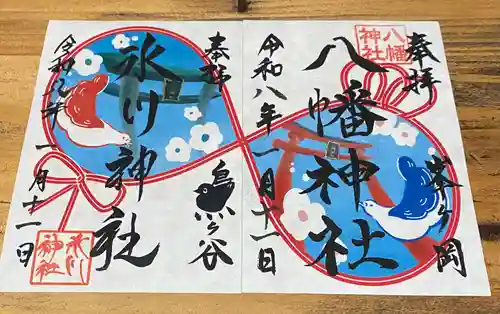 奉拝
峯ヶ岡
八幡神社
令和八年一月十一日
八幡
神社
奉拝
鳩ヶ谷
氷川神社
令和八年一月十一日
氷川
神社